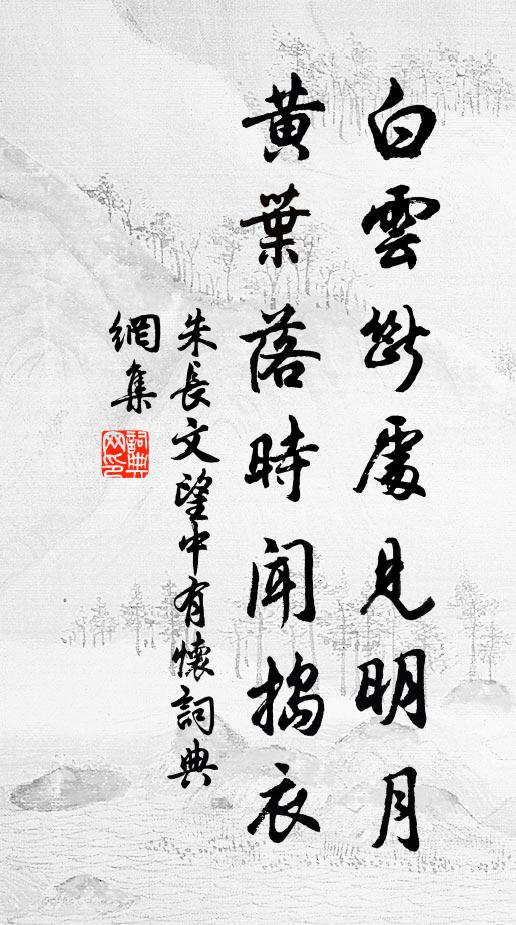 白雲斷處見明月
黃葉落時聞搗衣
朱長文望中有懷詞典
網集
詞典網印